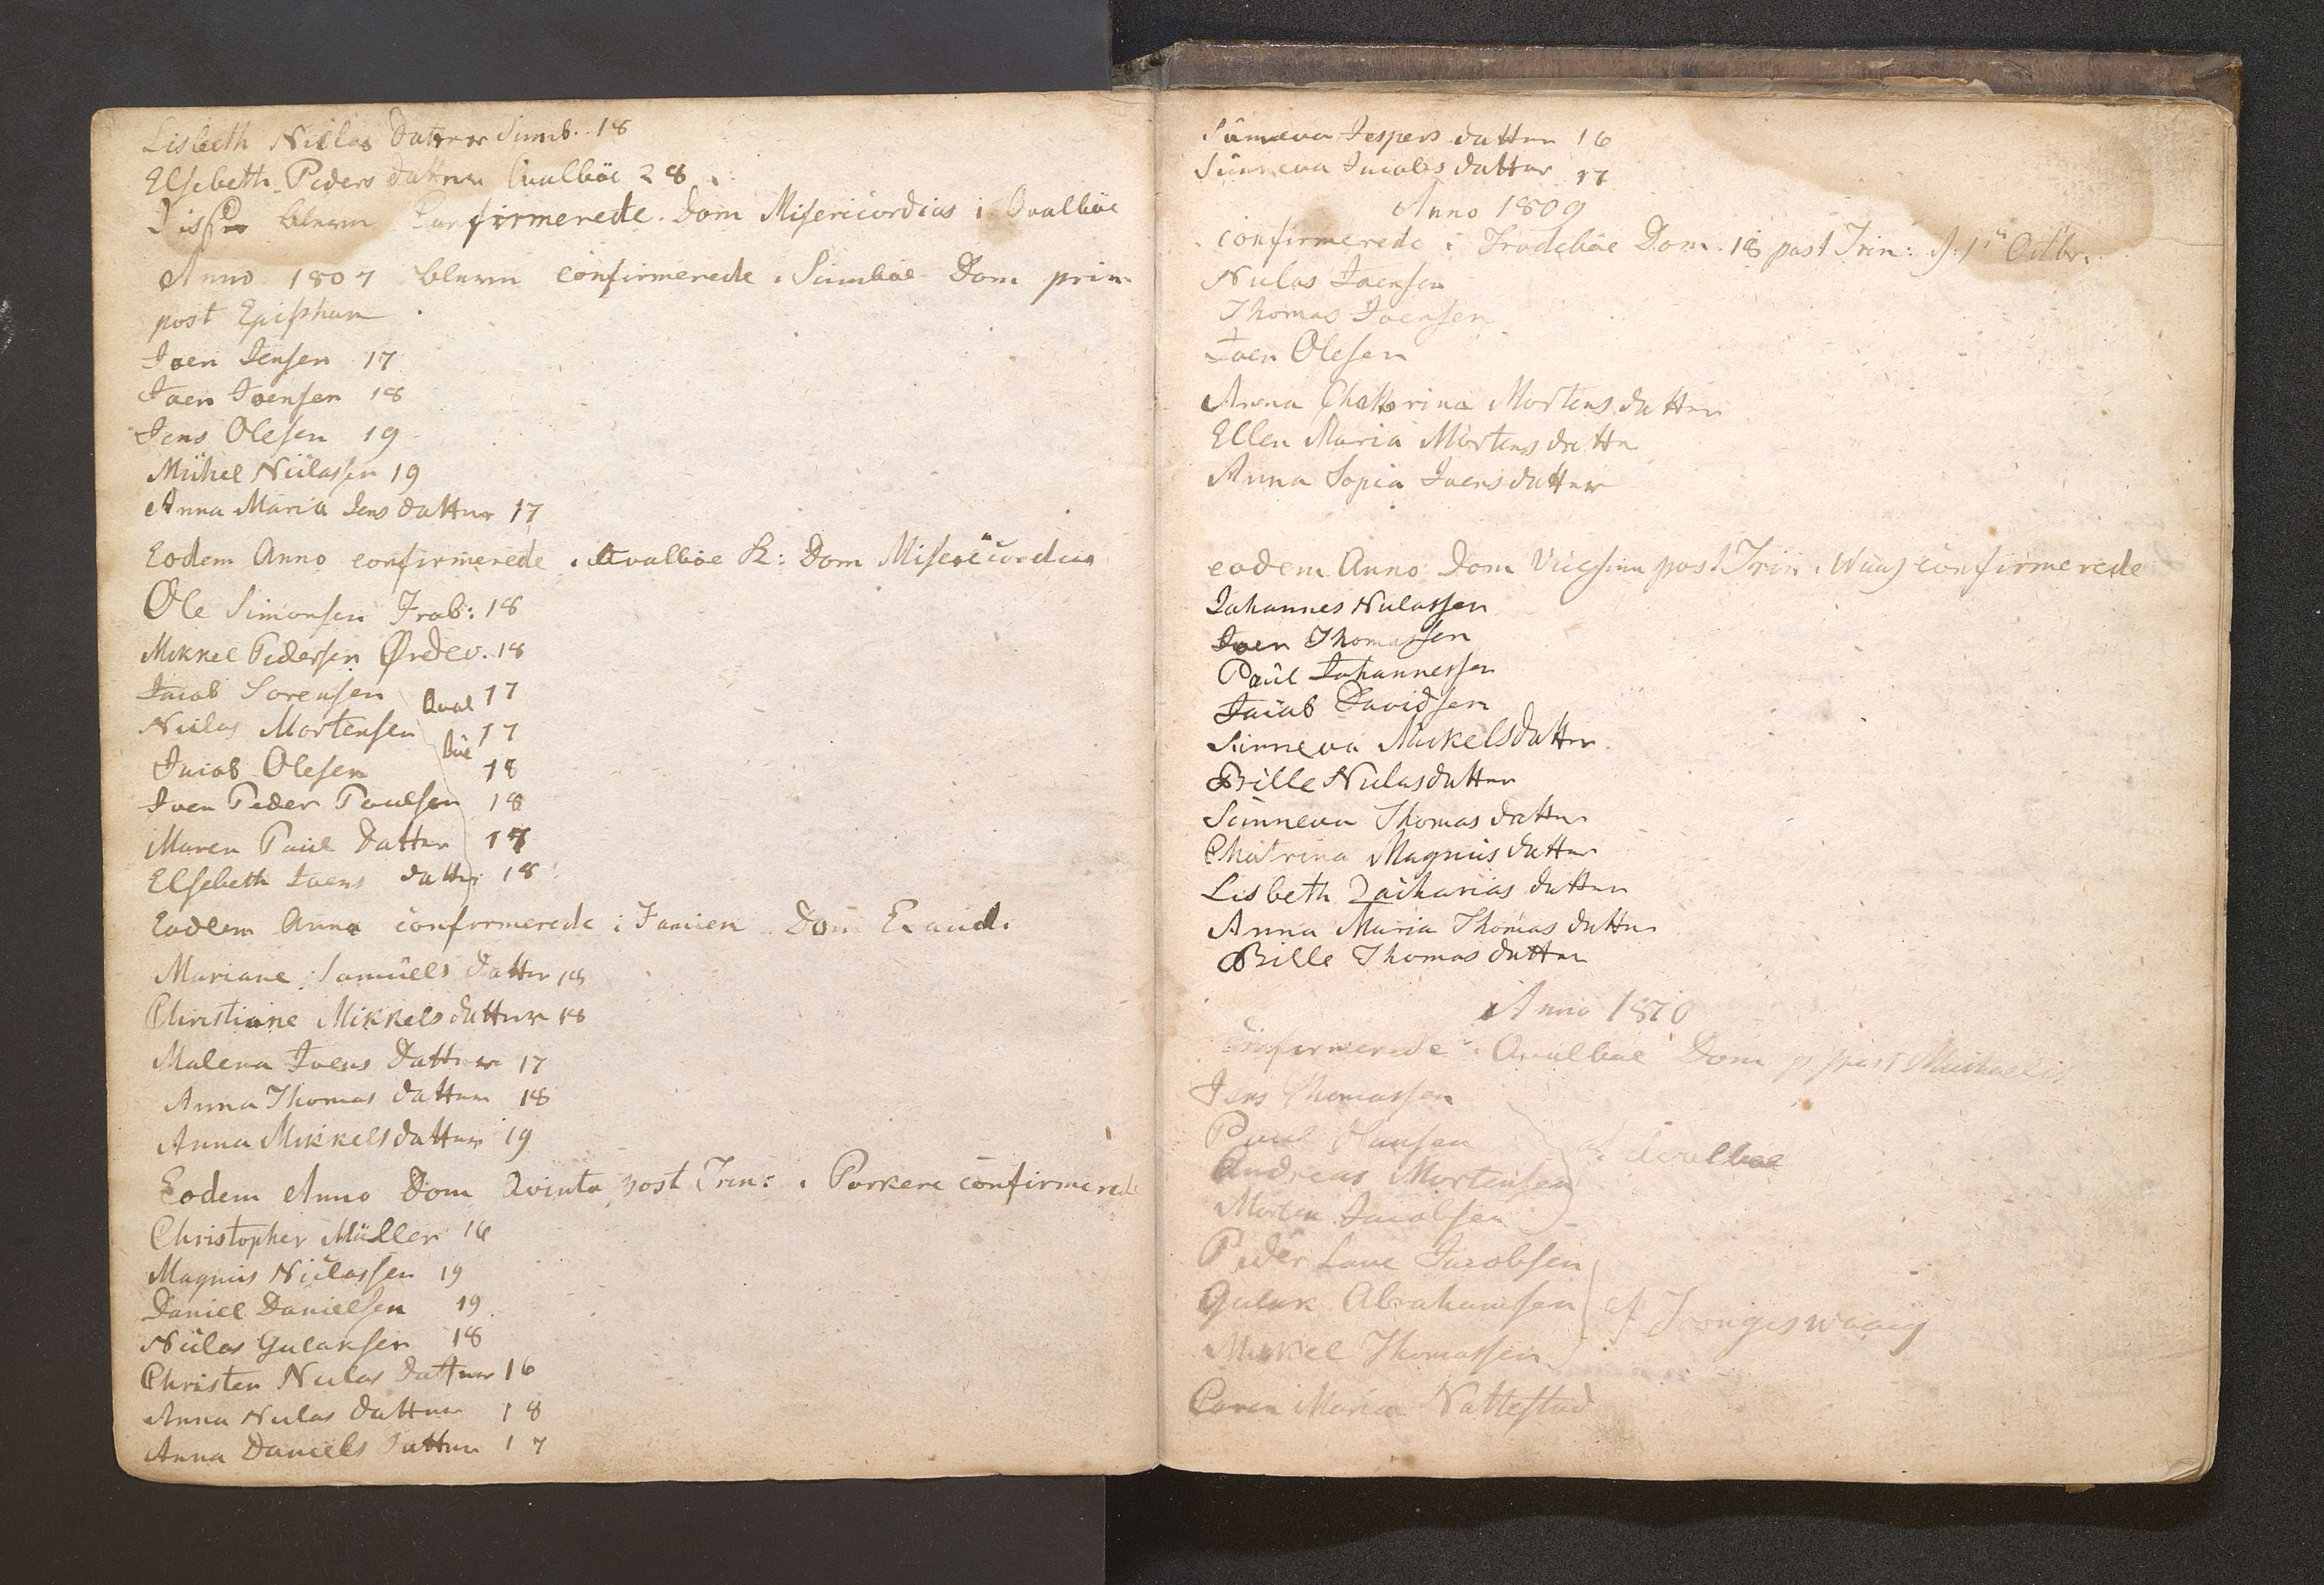 Lisbeth Niclas Datter Sumb. 18
Elsebeth Peders datter Qualböe 28
Disse blevn Confirmerede. Dom Misericordias i Qualböe
Anno 1807 blevn confirmerede i Sumböe Dom prim
post Epiphan
Joen Jensen 17
Joen Joensen 18
Jens Olesen 19
Michel Niclassen 19
Anna Maria Jens datter 17
Eodem Anno confirmerede i Qvalböe K: Dom Misericordias
Ole Simonsen Frob: 18
Mikkel Pedersen Ørdev. 18
Jacob Sorensen Qual 17
Niclas Mortensen 17
Jacob Olesen böe 18
Joen Peder Poulsen 18
Maren Paul Datter 17
Elsebeth Joens datter 18
Eodem Anno conformerede i Famien Dom Exaud.
Mariane Samuels datter 18
Christiane Mikkels datter 18
Malena Joens Datter 17
Anna Thomas datter 18
Anna Mikkels datter 19
Eodem Anno Dom Qvinta post Trin: i Porkere confirmerede
Christopher Müller 16
Magnus Niclassen 19
Daniel Danielsen 19
Niclas Gulaksen 18
Christen Niclas Datter 16
Anna Niclas datter 18
Anna Daniels datter 17
Sunneva Jespers datter 16
Sunneva Jacobs datter 17
Anno 1809
confirmerede i Frodeböe Dom. 18 post Trin: d: 1te Octbr.
Niclas Joensen
Thomas Joensen
Joen Olesen
Anna Chatrina Mortens datter
Ellen Maria Mortens datte
Anna Sopia Joens datter
eodem Anno Dom Vicesima post Trin i Waag confirmerede
Johannes Niclassen
Joen Thomassen
Paul Johannessen
Jacob Davidsen
Sunneva Mickelsdatter
Bille Niclasdatter
Sunneva Thomas datter
Chatrina Magnus datter
Lisbeth Zacharias datter
Anna Maria Thomas datter
Bille Thomas datter
Anno 1810
Confirmerede i Qvalböe Dom p. post Michaelis
Jens Thomassen
Paul Hansen af Qvalböe
Andreas Mortensen
Morten Jacobsen
Peder Lave Jacobsen
Gulak Abrahamsen af Trongiswaag
Mikkel Thomassen
Caren Maria Nattestad